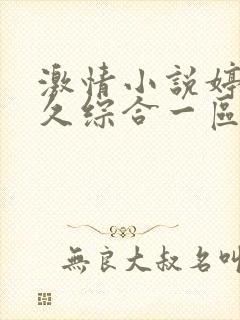 激情小説婷
久综合一區
無良大叔名叫